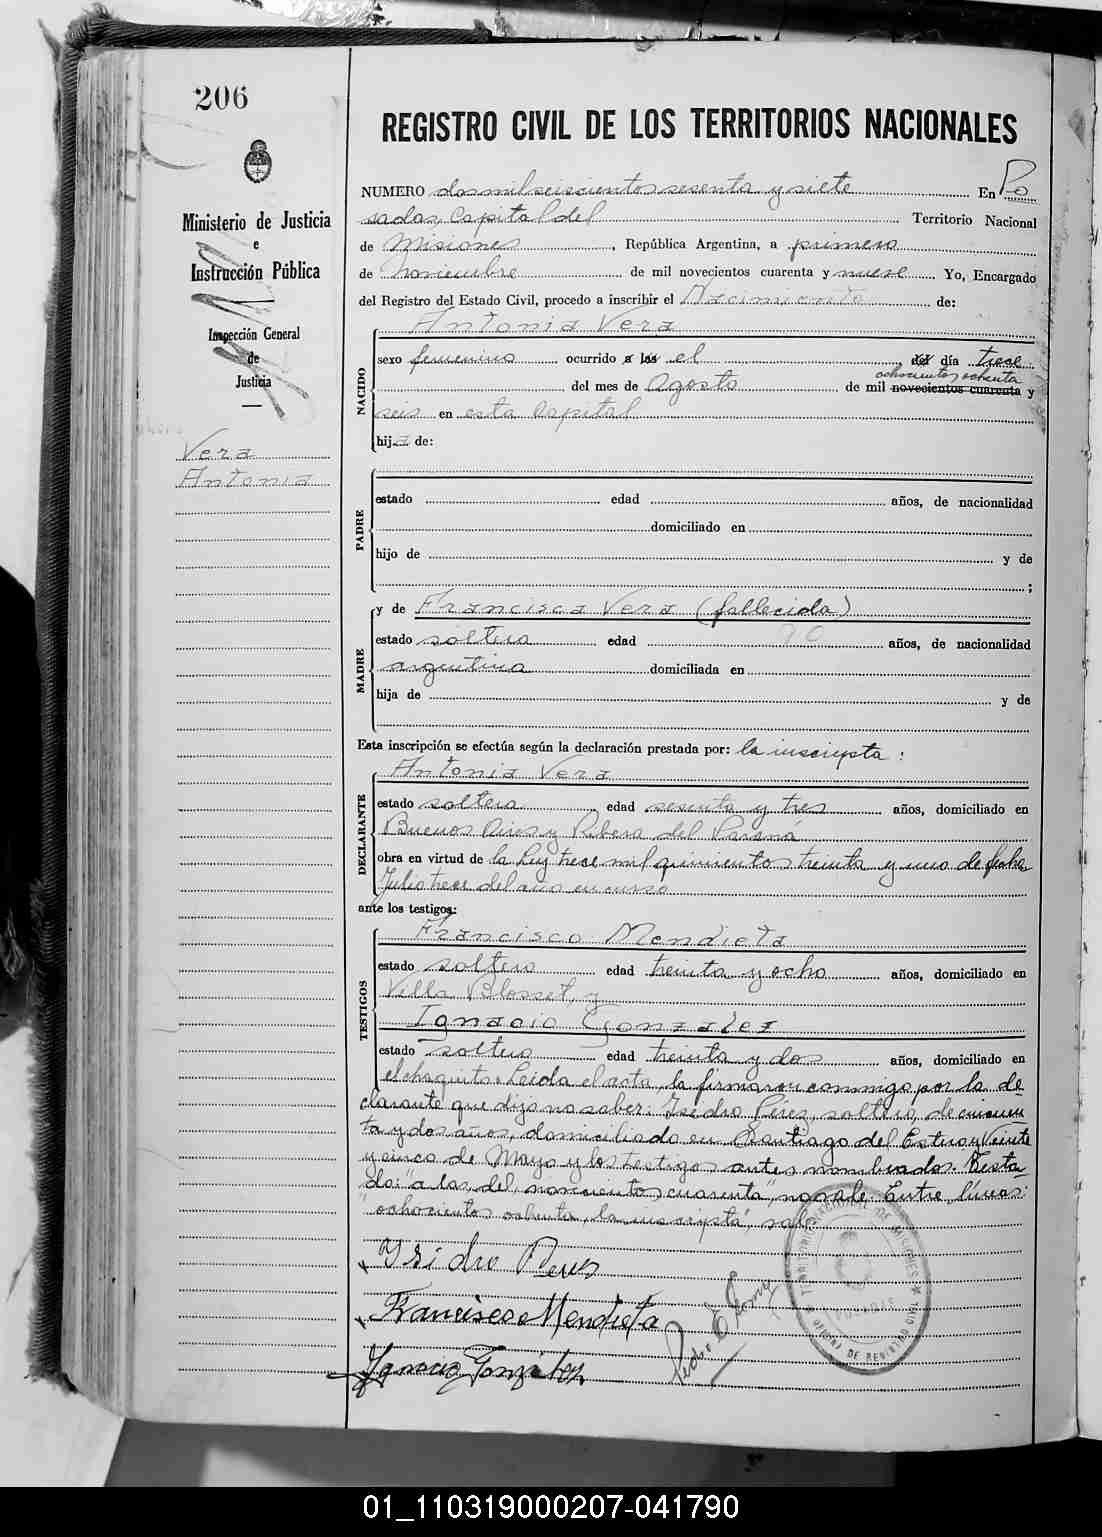 206
Ministerio de Justicia
e
Instrucción Pública
Inspección General
de
Justicia
Vera
Antonia
REGISTRO CIVIL DE LOS TERRITORIOS NACIONALES
NUMERO dos mil seiscientos sesenta y siete En Po
sadas, Capital del Territorio Nacional
de Misiones, República Argentina, a primero
de noviembre de mil novecientos cuarenta y nueve Yo, Encargado
del Registro del Estado Civil, procedo a inscribir el Nacimiento de:
Antonia Vera
NACIDO
sexo femenino ocurrido a las el del día trece
ochocientos ochenta
del mes de Agosto de mil novecientos cuarenta y
seis en esta Capital
hija de:
PADRE
estado edad años, de nacionalidad
domiciliado en
hijo de y de
;
y de Francisca Vera (fallecida)
MADRE
estado soltera edad años, de nacionalidad
argentina domiciliada en
hija de y de
Esta inscripción se efectúa según la declaración prestada por: la inscripta:
Antonia Vera
DECLARANTE
estado soltera edad sesenta y tres años, domiciliado en
Buenos Aires y Ribera del Paraná
obra en virtud de la Ley trece mil quinientos treinta y uno de fecha
Julio trece del año en curso
ante los testigos:
Francisco Mendieta
TESTIGOS
estado soltero edad treinta y ocho años, domiciliado en
Villa Blosset, y
Ignacio González
estado soltero edad treinta y dos años, domiciliado en
el chaquito. Leida el acta, la firmaron conmigo por la de
clarante que dijo no saber: Isidro Pérez, soltero, de cincuen
ta y dos años, domiciliado en Santiago del Estero y Veinte
y cinco de Mayo y los testigos antes nombrados. Testa
do: "a las, del, novecientos cuarenta", no vale. Entre líneas:
"ochocientos ochenta, la inscripta", vale
Ysidro Peres
Francisco Mendieta
Ignacio Gonzalez
Pedro E
TERRITORIO NACIONAL DE MISIONES
POSADAS
OFICINA DE REGISTRO CIVIL
01_110319000207-041790